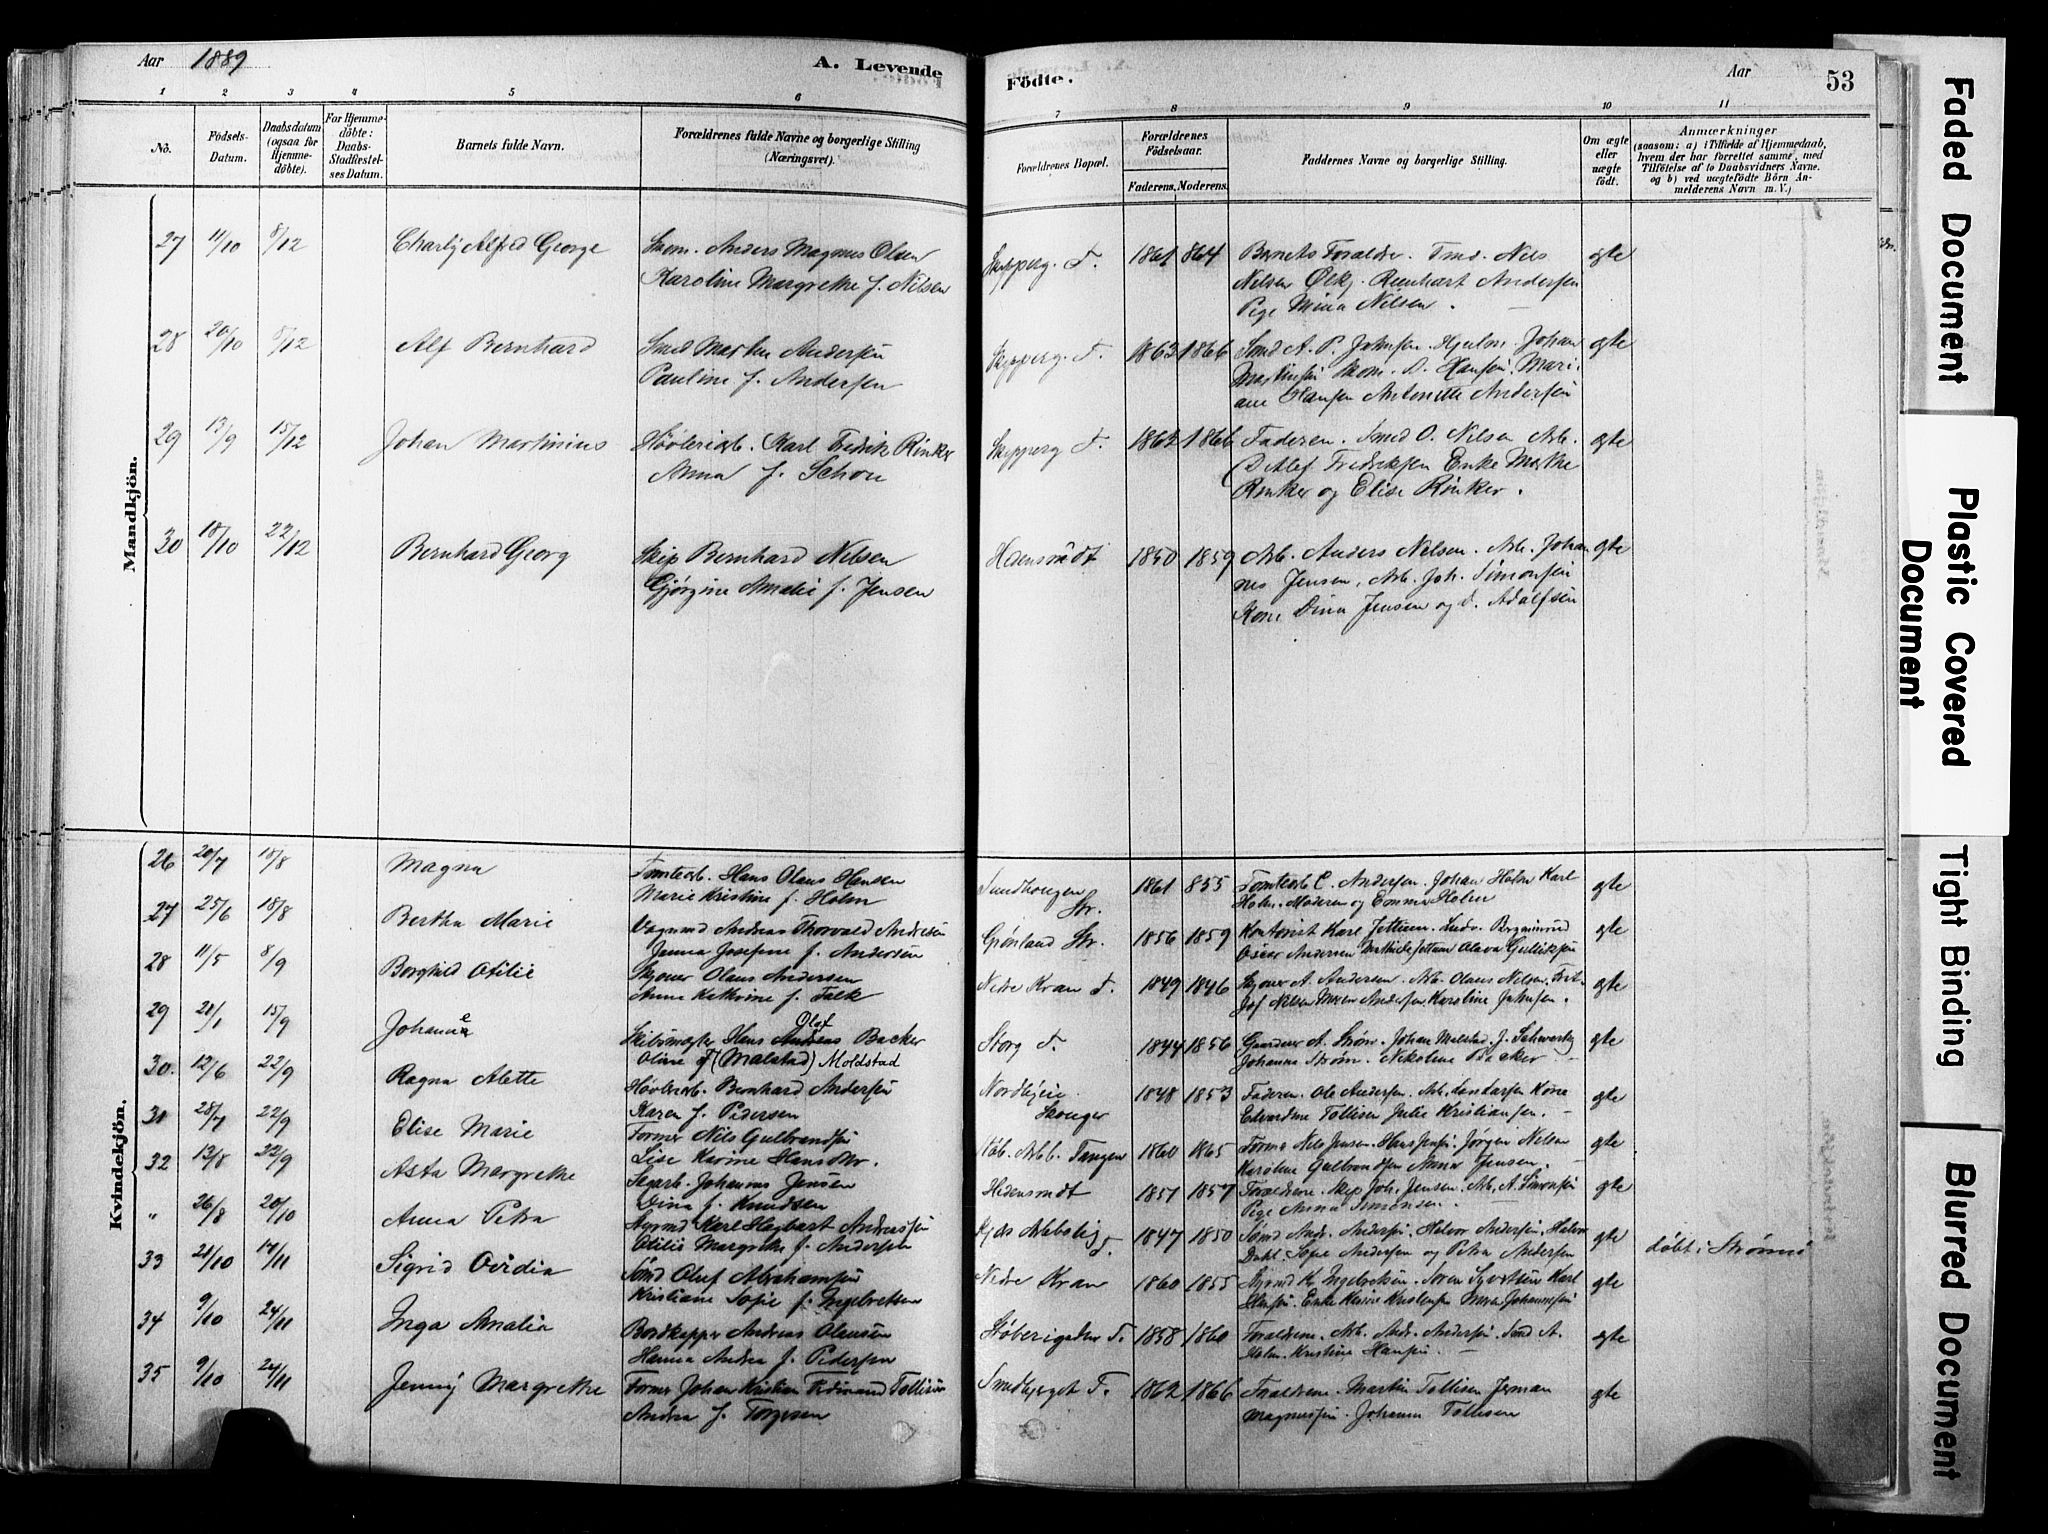 Aar 1889
A. Levende
Fødte.
Aar
53
1 2 3 4 5 6
7 8 9 10 11
No.
Fødsels-Datum.
Daabsdatum (ogsaa for Hjemme-døbte).
For Hjemme-døbte: Daabs-Stadfæstel-ses Datum.
Barnets fulde Navn.
Forældrenes fulde Navne og borgerlige Stilling (Næringsvei).
Forældrenes Bopæl.
Forældrenes Fødselsaar.
Faderens. Moderens.
Faddernes Navne og borgerlige Stilling.
Om ægte eller uægte født.
Anmærkninger
(saasom: a) i Tilfælde af Hjemmedaab,
hvem der har forrettet samme, med
Tilføielse af to Daabsvidners Navne.
og b) ved uægtefødte Børn An-
melderens Navn m. V.)
Mandkjøn.
27 11/10 8/12 Charly Alfred George
Skom. Anders Magnus Olsen
Karoline Margrethe f. Nilsen
Skipperg. T. 1861 864
Barnets Foraldre. Tmd. Nils
Nilsen Ølkj. Reinhart Andersen
Pige Mina Nilsen.
gte
28 20/10 8/12 Alf Bernhard
Smed Martin Andersen
Pauline f. Andersen
Skipperg. T. 1863 1866
Smd A. P. Johnsen. Hjelm. Johan
Martinsen Skom. O. Hansen. Mari-
ane Hansen Antonette Andersen
gte
29 13/9 15/12 Johan Martinius
Høvleriarb. Karl Fredrik Rinker
Anna f. Schou
Skipperg T. 1862 1866
Faderen. Smed O. Nilsen Arb.
Detlef Fredriksen Enke Marthe
Rinker og Elise Rinker.
gte
30 18/10 22/12 Bernhard Georg
Skip Bernhard Nilsen
Gjørgine Amalie f. Jensen
Hedensrudt 1850 1859
Arb. Anders Nilsen. Arb. Johan
nes Jensen, Arb. Joh. Simonsen
Kone Dina Jensen og d. Adolfsen
gte
Kvindekjøn.
26 20/7 18/8 Magna
Tomtearb. Hans Olaus Hansen
Marie Kristine f. Holm
Sundhaugen Str. 1861 855
Tomtearb C. Andersen. Johan Holm Karl
Holm. Moderen og Emma Holm
gte
27 25/6 18/8 Bertha Marie
Vognmd Andreas Thorvald Andresen
Jenna Josefine f. Andersen
Grønland Str. 1856 1859
Kontorist Karl Jettum. Ludv. Bergminrud
Oscar Andersen Mathilde Jettum Olava Gulliksen
gte
28 11/5 8/9 Borghild Otilie
Skjøner Olaus Andersen
Anne Kathrine f. Falk
Nedre Kran T. 1849 1846
Skjøner A. Andersen. Arb. Olaus Nilsen. Frit-
jof Nilsen Maren Andersen, Karoline Johnsen.
gte
29 21/1 15/9 Johanne
Skibsmægler Hans Olaf Becker
Oline f. (Malstad) Moldstad
Storg T. 1844 1856
Gaardeier A. Strøm. Johan Malstad J. Schwartz
Johanna Strøm. Nikoline Becker
gte
30. 12/6 22/9 Ragna Alette
Høvlearb. Bernhard Andersen
Karen f. Pedersen
Nordbyeie Skouger 1848 1853
Faderen. Ole Andersen. Arb. Kone
Edvardine Tollisen Julie Kristiansen.
gte
31 28/7 22/9 Elise Marie
Former Nils Gulbrandsen
Lise Karine Hansdtr.
Støb. Arb. Tangen 1860 1865
Former Nils Jensen. Hans Jensen. Jørgen Nilsen
Karoline Gulbrandsen Anna Jensen.
gte
32 13/8 22/9 Asta Margrethe
Segarb. Johannes Jensen
Dina f. Knudsen
Hedensrudt 1851 1857
Foraldrene. Skip Joh. Jensen. Arb. A. Simonsen
Pige Anna Simonsen.
gte
" 26/8 20/10 Anna Petra
Karl Hagbart Andreassen
Otilie Margrethe f. Andersen
T. 1847 1850
Sømd Andr. Andersen, Halvor Andersen, Halvor
Dahl. Sofie Andersen og Petra Andersen
gte
døbt i Strømsø
33 21/10 17/11 Sigrid Ovidia
Sømd Oluf Abrahamsen
Kristiane Sofie f. Ingebretsen
Nedre Kran 1860 1855
Styrmd K. Ingebretsen. Søren Syvertsen Karl
Hansen. Enke Karine Kristensen Maren Johannesen
gte
34 9/10 24/11 Inga Amalia
Bordkapper Andreas Olausen
Hanna Andrea f. Pedersen
Støberigaden T. 1858 1860
Foraldrene. Arb. Andr. Andersen. Smd A.
Holm. Kristine Hansen.
gte
35 9/10 24/11 Jenny Margrethe
Former Johan Kristian Ferdinand Tollisen
Andrea f. Torgersen
Smedbjerget T. 1862 1866
Foraldrene. Martin Tollisen Herman
Magnussen. Johanna Tollisen
gte
Faded Document
Plastic Covered Document
Tight Binding
Blurred Document